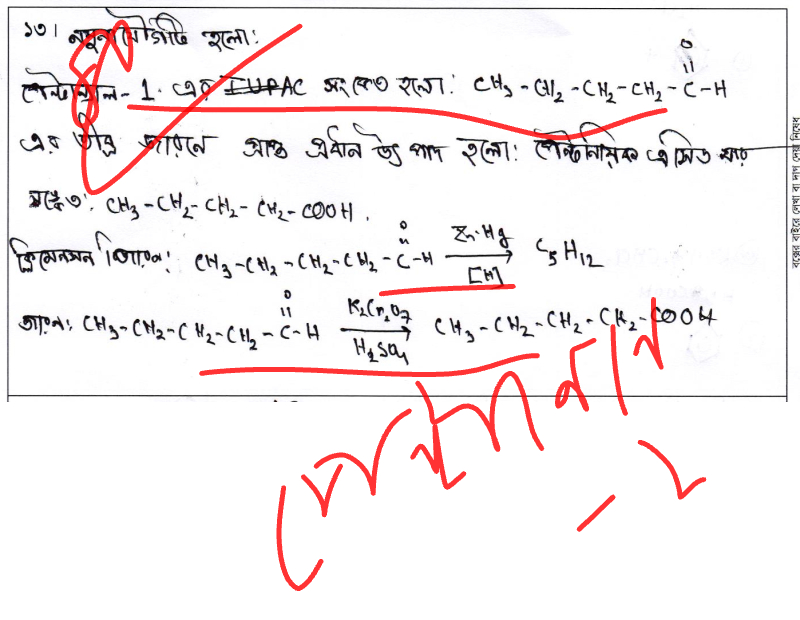 ১৩। নমুনা যৌগটি হলো:
পেন্টান্যাল-1. এর IUPAC সংকেত হলো: CH₃-CH₂-CH₂-CH₂-C-H
O
এর তীব্র জারনে প্রাপ্ত প্রধান উৎপাদ হলো: পেন্টানয়িক এসিড যার
সংকেত: CH₃-CH₂-CH₂-CH₂-COOH.
ক্লিমেনসন বিজারণ: CH₃-CH₂-CH₂-CH₂-C-H Zn-Hg [H] C₅H₁₂
O
জারন: CH₃-CH₂-CH₂-CH₂-C-H K₂Cr₂O₇ H₂SO₄ CH₃-CH₂-CH₂-CH₂-COOH
O
- ২
বক্সের বাইরে লেখা বা দাগ দেয়া নিষেধ